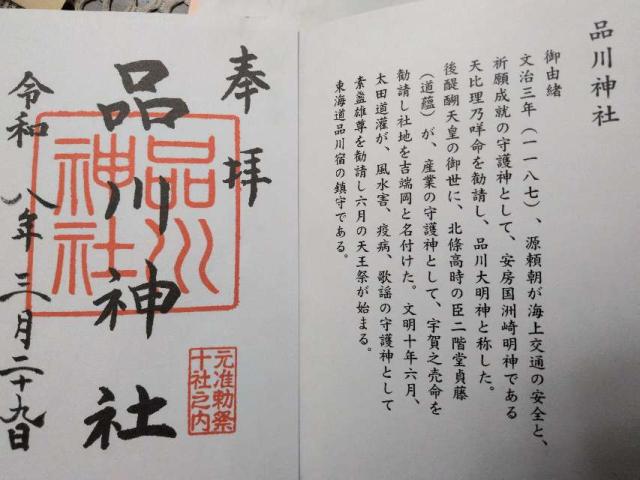 品川神社
御由緒
文治三年（一一八七）、源頼朝が海上交通の安全と、
祈願成就の守護神として、安房国洲崎明神である
天比理乃咩命を勧請し、品川大明神と称した。
後醍醐天皇の御世に、北條高時の臣二階堂貞藤
（道蘊）が、産業の守護神として、宇賀之売命を
勧請し社地を吉端岡と名付けた。文明十年六月、
太田道灌が、風水害、疫病、歌謡の守護神として
素盞雄尊を勧請し六月の天王祭が始まる。
東海道品川宿の鎮守である。
奉拝
品川神社
品川
神社
元准勅祭
十社之内
令和八年三月二十九日